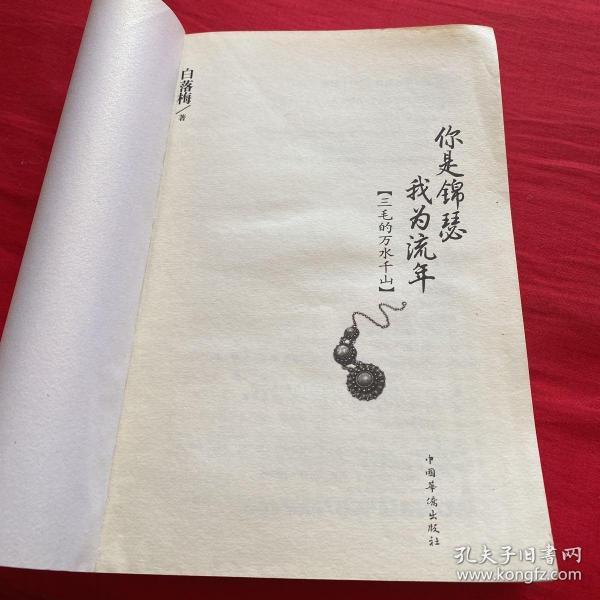 你是锦瑟
我为流年
【三毛的万水千山】
白落梅/著
中國華僑出版社
孔夫子旧书网
www.kongfz.com